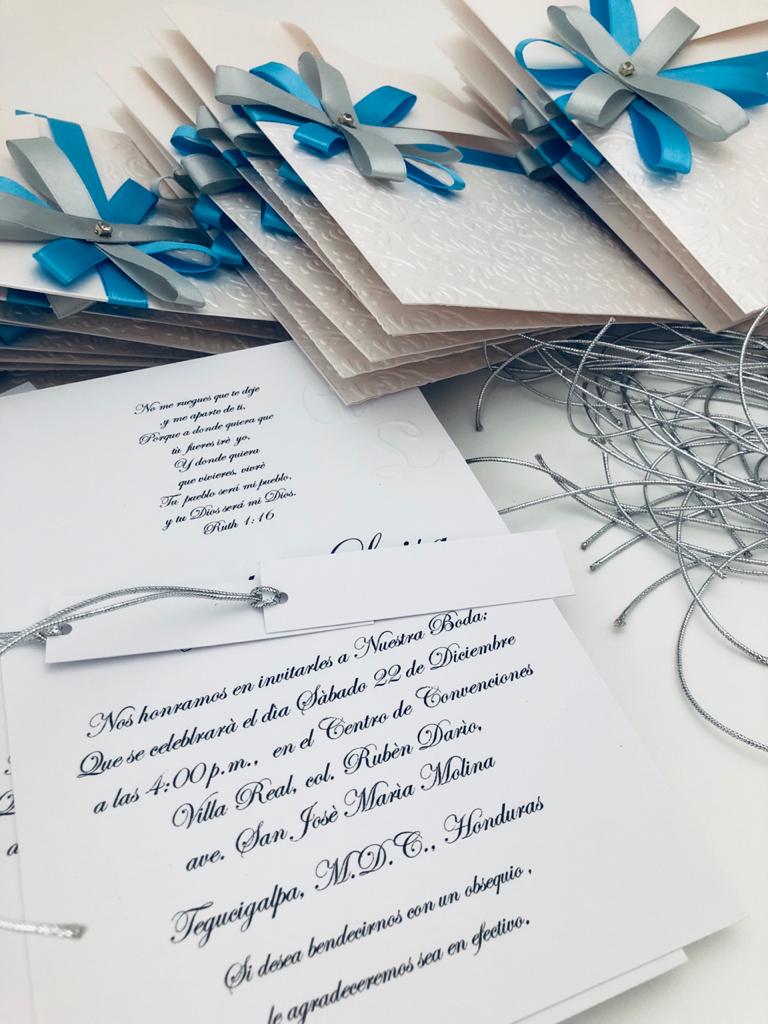 No me ruegues que te deje
y me aparte de ti.
Porque a donde quiera que
tù fueres irè yo.
Y donde quiera
que vivieres, vivrè
Tu pueblo serà mi pueblo,
y tu Dios serà mi Dios.
Ruth 1:16
Nos honramos en invitarles a Nuestra Boda:
Que se celeblrarà el dìa Sàbado 22 de Diciembre
a las 4:00p.m., en el Centro de Convenciones
Villa Real, col. Rubèn Darìo,
ave. San Josè Marìa Molina
Tegucigalpa, M.D.C., Honduras
Si desea bendecirnos con un obsequio,
le agradeceremos sea en efectivo.